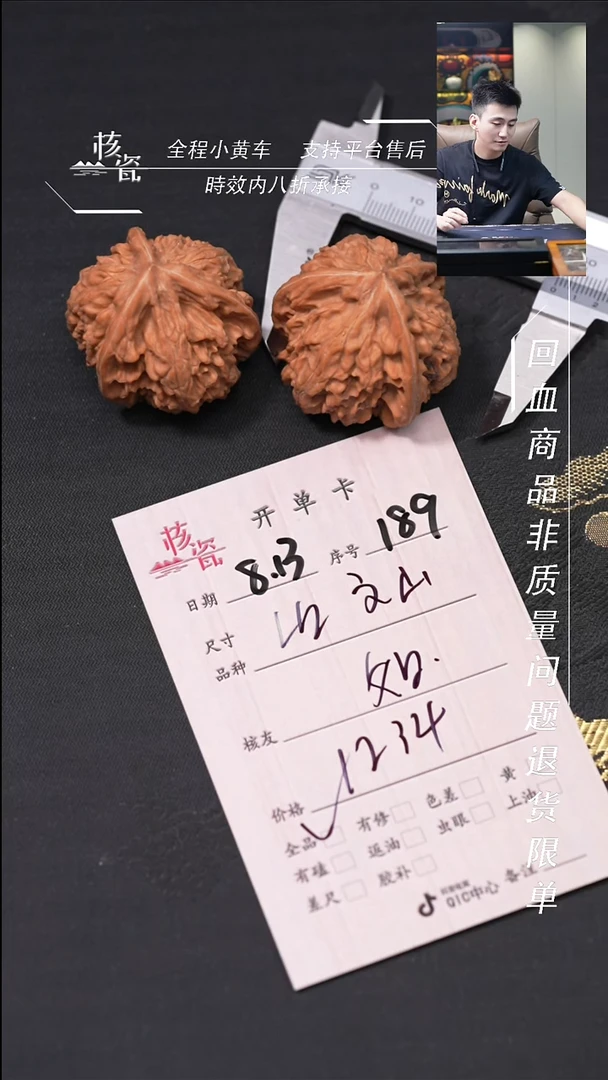 核瓷
全程小黄车 支持平台售后
時效内八折承接
回血商品非质量问题退货限单
核瓷
开单卡
日期 8.13 序号 189
尺寸
品种
文山
核友
价格 1234
全品 有修 色差 黄
有磕 返油 虫眼 上油
差尺 胶补
QIC中心 备注